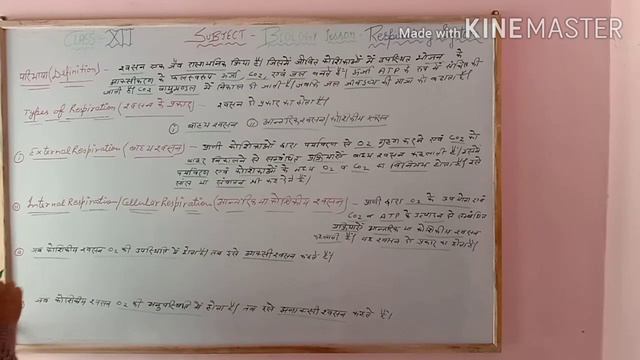 Made with KINEMASTER
CLASS-XII SUBJECT - BIOLOGY lesson - Respiratory
परिभाषा (Definition) - श्वसन एक जैव रासायनिक क्रिया है। जिसमें जीवित कोशिकाओं में उपस्थित भोजन के
आक्सीकरण के फलस्वरूप ऊर्जा, CO2, एवं जल बनते हैं। ऊर्जा ATP के रूप में संचित की
जाती है। CO2 वायुमण्डल में निकाल दी जाती है। जबकि जल जीवद्रव्य की मात्रा को बढ़ाता है।
Types of Respiration (श्वसन के प्रकार) - श्वसन दो प्रकार का होता है।
① बाह्य श्वसन ② आन्तरिक श्वसन/कोशिकीय श्वसन
① External Respiration (बाह्य श्वसन) - प्राणी कोशिकाओं द्वारा पर्यावरण से O2 ग्रहण करने एवं CO2 को
बाहर निकालने से सम्बंधित प्रक्रियायें बाह्य श्वसन कहलाती हैं। इसमें
पर्यावरण एवं कोशिकाओं के मध्य O2 व CO2 का विनिमय होता है। इसे
श्वास या संवातन भी कहते हैं।
② Internal Respiration/Cellular Respiration (आन्तरिक या कोशिकीय श्वसन) - प्राणी द्वारा O2 के उपयोग एवं
CO2 व ATP के उत्पादन से सम्बंधित
प्रक्रियायें आन्तरिक या कोशिकीय श्वसन
कहलाती हैं। यह श्वसन दो प्रकार का होता है।
जब कोशिकीय श्वसन O2 की उपस्थिति में होता है। तब इसे आक्सी श्वसन कहते हैं।
जब कोशिकीय श्वसन O2 की अनुपस्थिति में होता है। तब इसे अनाक्सी श्वसन कहते हैं।